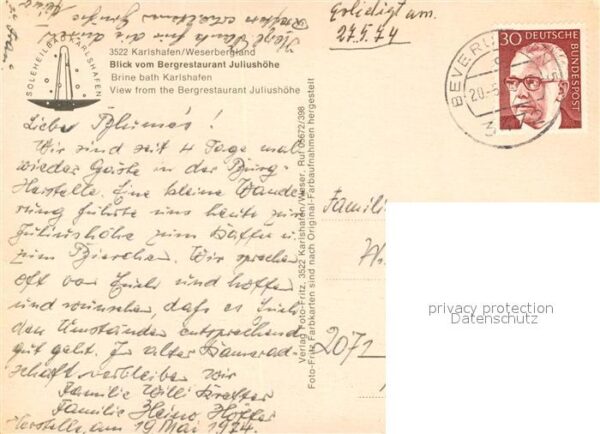 Erledigt am
27.5.74
SOLEHEILBAD KARLSHAFEN
3522 Karlshafen/Weserbergland
Blick vom Bergrestaurant Juliushöhe
Brine bath Karlshafen
View from the Bergrestaurant Juliushöhe
Liebe Blumes!
Wir sind seit 4 Tage mal
wieder Gäste in der Burg
Herstelle. Eine kleine Wande
rung führte uns heute zur
Juliushöhe zum Kaffee u.
zum Bierchen. Wir sprechen
oft von Euch und hoffen
und wünschen, dass es Euch
den Umständen entsprechend
gut geht. In alter Kamerad-
schaft verbleiben wir
Familie Willi
Familie Heino
Herstelle, am 19 Mai 1974.
Verlag Foto-Fritz, 3522 Karlshafen/Weser, Ruf 05672/398
Foto-Fritz Farbkarten sind nach Original-Farbaufnahmen hergestellt
30 DEUTSCHE
BUNDESPOST
BEVERU
20.-5
3
Famili
2071
privacy protection
Datenschutz